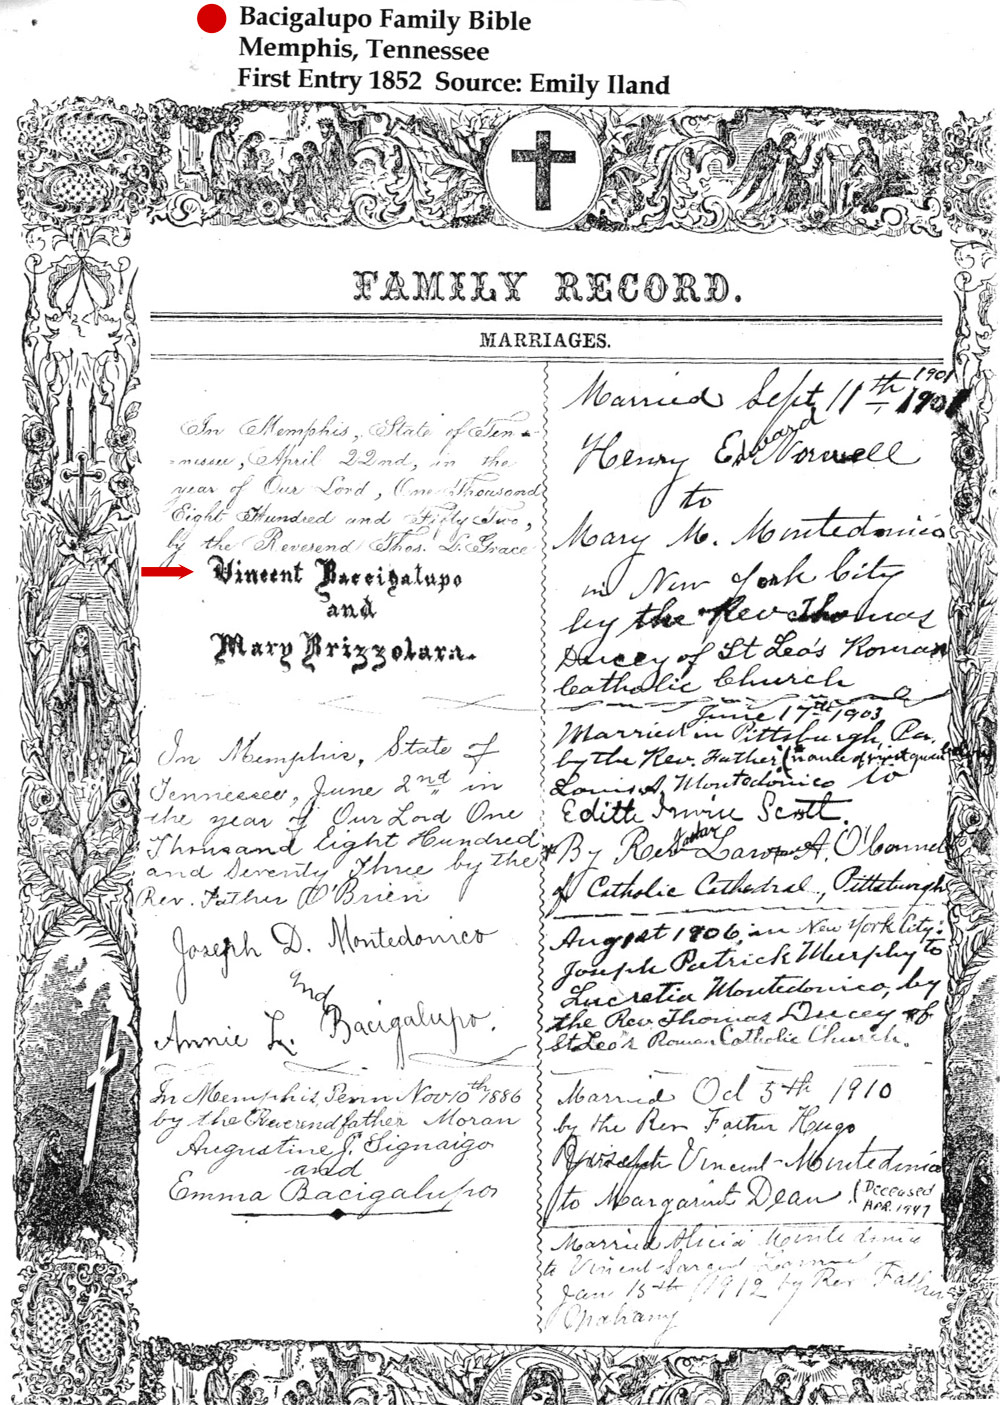 Bacigalupo Family Bible
Memphis, Tennessee
First Entry 1852 Source: Emily Iland
FAMILY RECORD.
MARRIAGES.
In Memphis, State of Ten-
nessee, April 22nd, in the
year of Our Lord, One Thousand
Eight Hundred and Fifty Two,
by the Reverend Thos. L. Grace
Vincent Baccigalupo
and
Mary Brizzolara.
In Memphis, State of
Tennessee, June 2nd in
the year of Our Lord One
Thousand Eight Hundred
and Seventy Three by the
Rev. Father O'Brien
Joseph D. Montedonico
and
Annie L. Bacigalupo.
In Memphis, Tenn Nov 10th 1886
by the Reverend father Moran
Augustine J. Signaigo
and
Emma Bacigalupo
1901
Married Sept 11th 1901
Henry Edward Norwell
to
Mary M. Montedonico
in New York City
by the Rev Thomas
Ducey of St Leo's Roman
Catholic Church
June 17th 1903
Married in Pittsburgh, Pa.
by the Rev. Father (name of
Louis A. Montedonico to
Edith Irwin Scott.
* By Rev. Father A. O'Connel
of Catholic Cathedral, Pittsburgh
Aug 1st 1906, in New York City:
Joseph Patrick Murphy to
Lucretia Montedonico, by
the Rev. Thomas Ducey of
St Leo's Roman Catholic Church.
Married Oct 5th 1910
by the Rev Father Hugo
Joseph Vincent Montedonico
to Margaret Dean (Deceased
Apr. 1947
Married Alicia Montedonico
to Vincent
Jan 15th 1912 by Rev Father